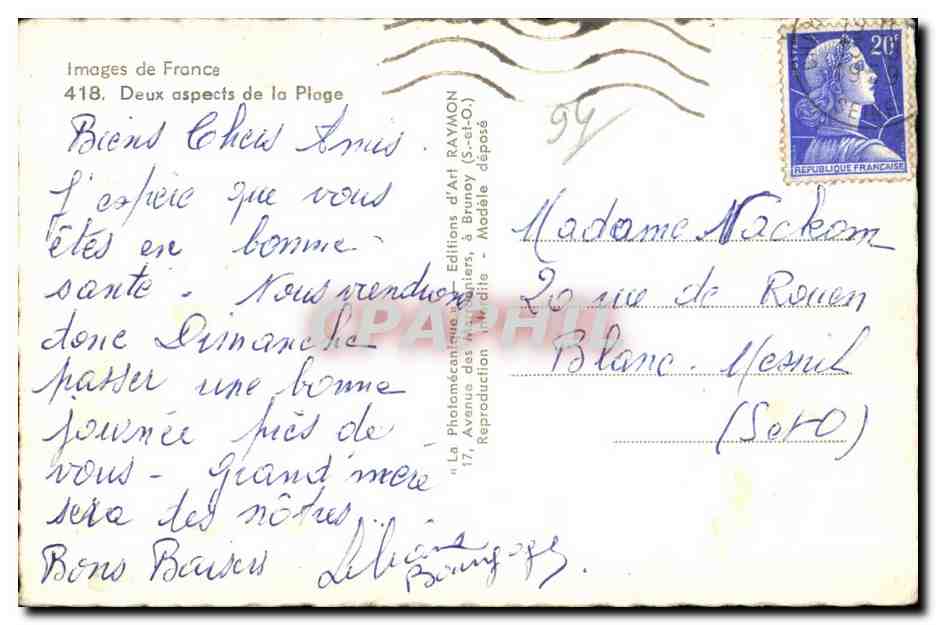 Images de France
418. Deux aspects de la Plage
Biens Chers Amis.
J'espère que vous
êtes en bonne
santé - Nous viendrons
donc Dimanche
passer une bonne
journée près de
vous - Grand'mère
sera des nôtres..
Bons Baisers
"La Photomécanique" - Editions d'Art RAYMON
17, Avenue des Marronniers, à Brunoy (S.-et-O.)
Reproduction interdite - Modèle déposé
94
20F
REPUBLIQUE FRANCAISE
Madame Nackom
20 rue de Rouen
Blanc-Mesnil
(SetO)
CPAPHIL